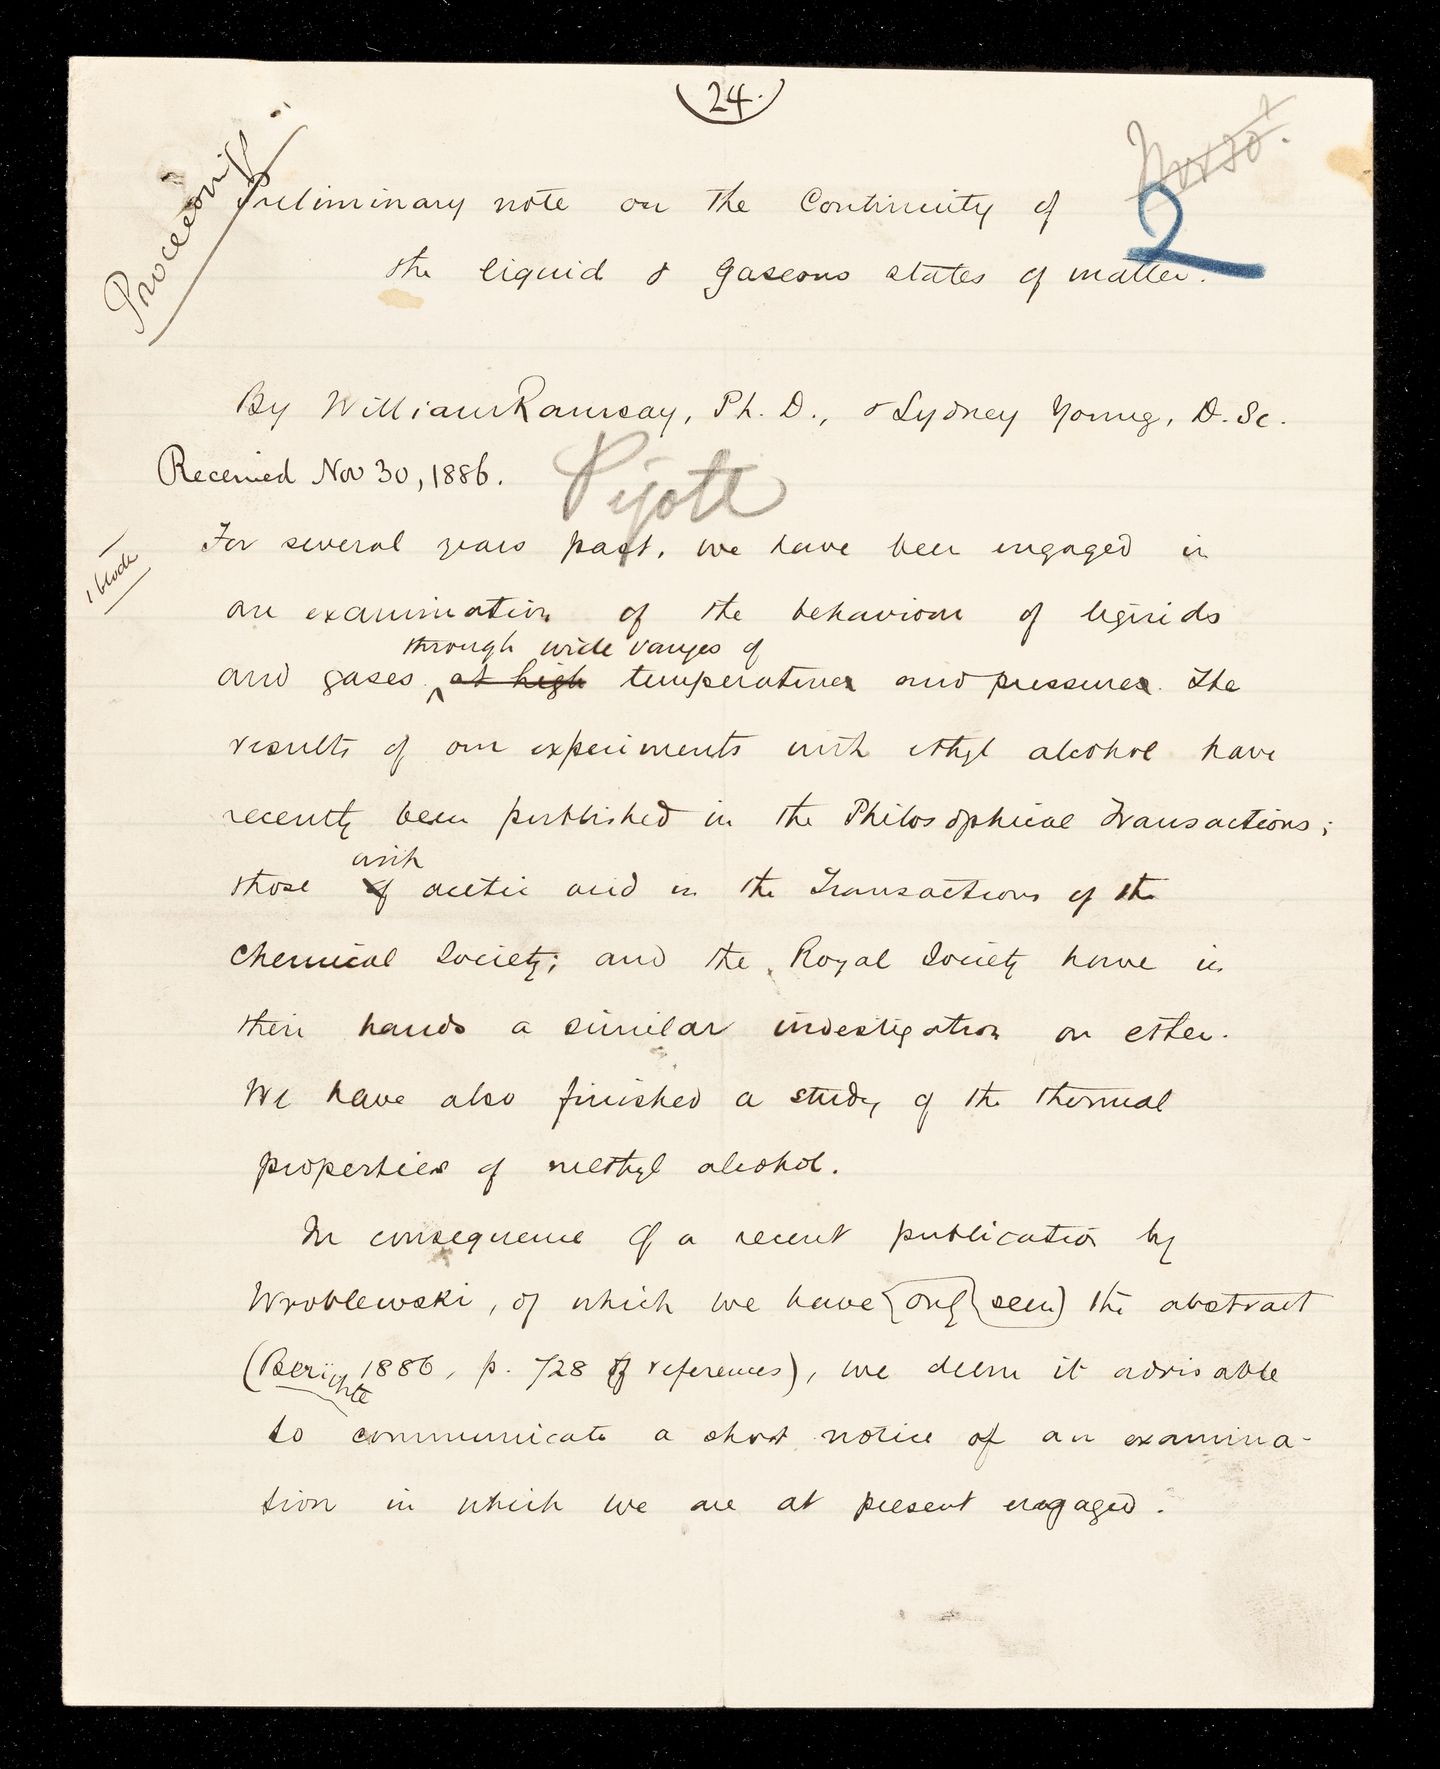 (24.)
Proceedings
Nov 30.
2
Preliminary note on the Continuity of
the liquid & gaseous states of matter.
By William Ramsay, Ph. D., & Sydney Young, D. Sc.
Received Nov 30, 1886.
1 block
For several years past, we have been engaged in
an examination of the behaviour of liquids
through wide ranges of
and gases at high temperatures and pressures. The
results of our experiments with ethyl alcohol have
recently been published in the Philosophical Transactions;
with
those of acetic acid in the Transactions of the
Chemical Society; and the Royal Society have in
their hands a similar investigation on ether.
We have also finished a study of the thermal
properties of methyl alcohol.
In consequence of a recent publication by
Wroblewski, of which we have only seen the abstract
(Berichte 1886, p. 728 of references), we deem it advisable
to communicate a short notice of an examina-
tion in which we are at present engaged.